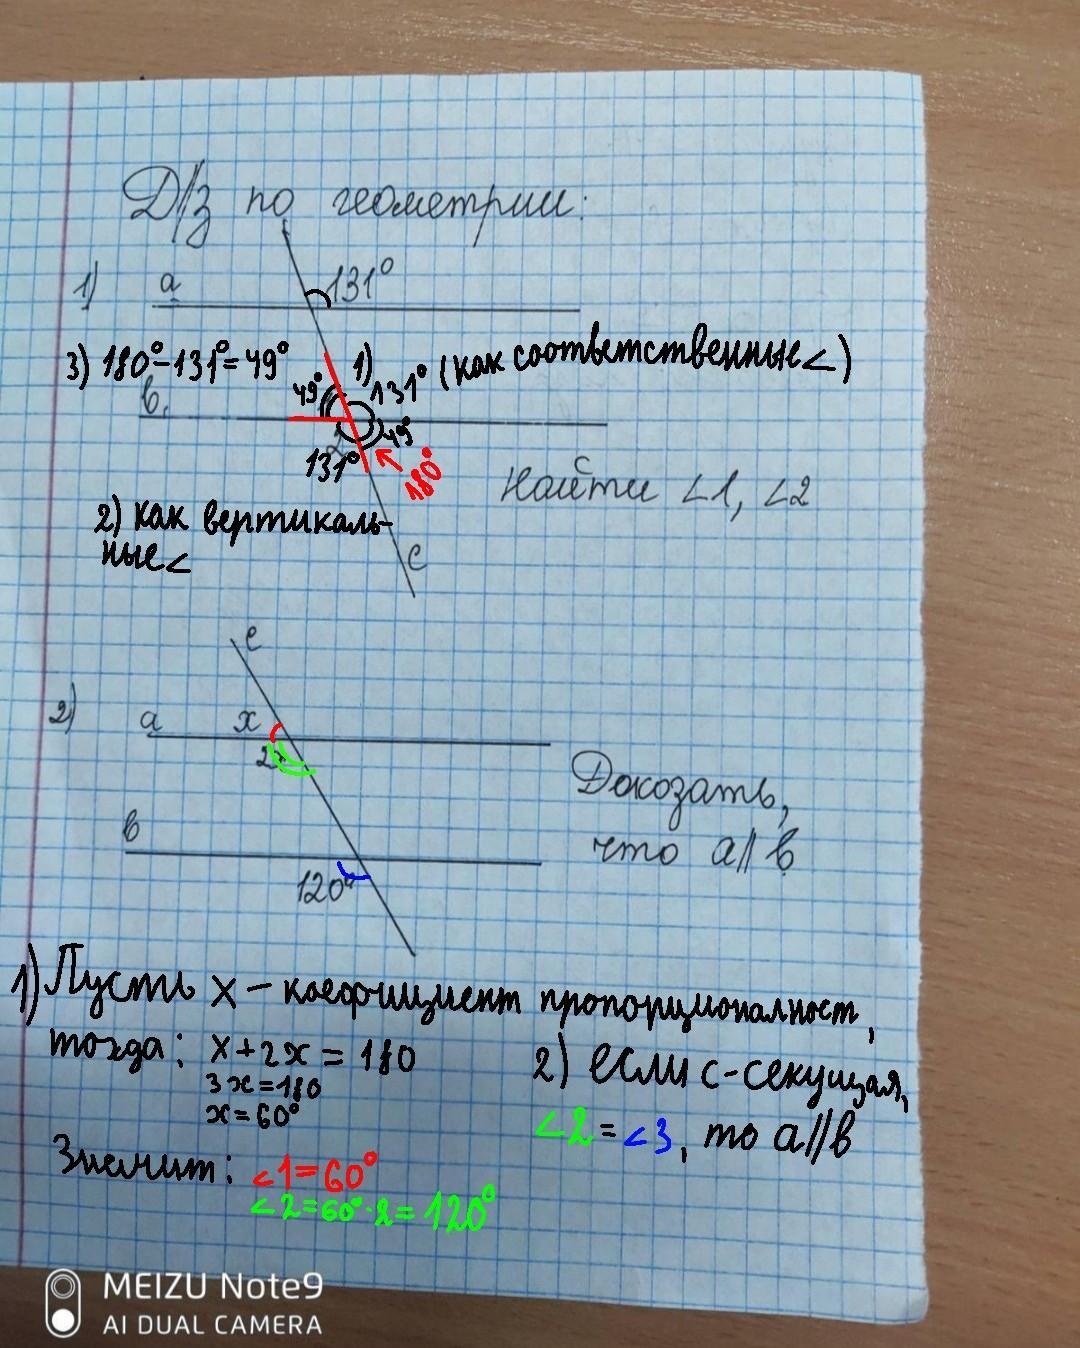 Д/з по геометрии:
1)
a
131°
3) 180°-131°=49°
1)
131° (как соответственные∠)
49°
в
49°
131°
180°
Найти ∠1, ∠2
2) как вертикаль-
ные∠
c
2)
c
a
x
2x
Докозать,
что a∥в
в
120°
1) Пусть x – коефициент пропорционалност,
тогда: x+2x=180
3x=180
x=60°
2) если c-секущая,
∠2=∠3, то a∥в
Значит: ∠1=60°
∠2=60°·2=120°
MEIZU Note9
AI DUAL CAMERA